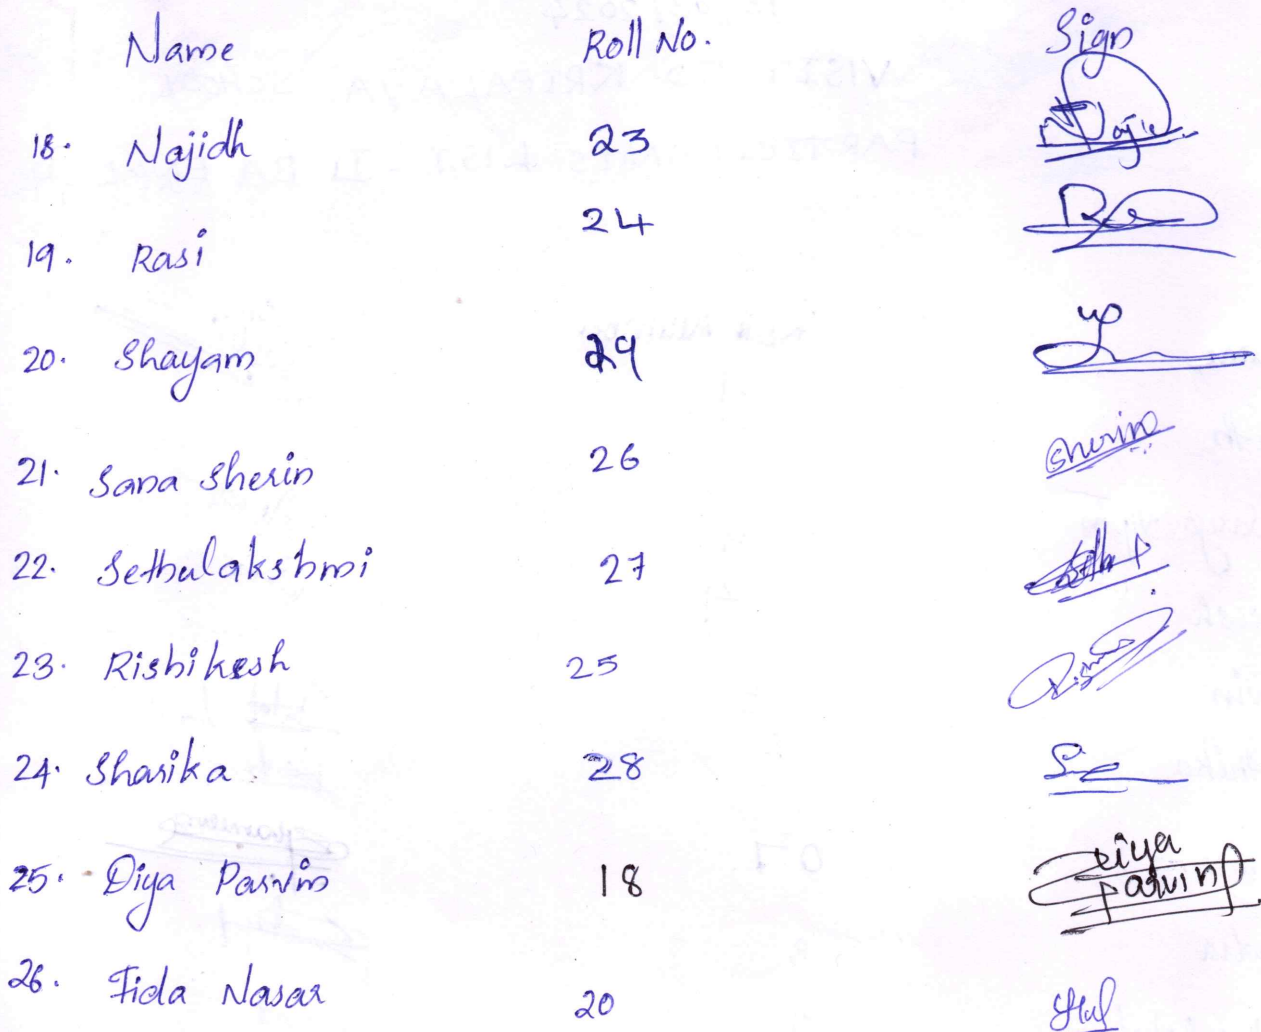 Name Roll No. Sign
18. Najidh 23
19. Rasi 24
20. Shayam 29
21. Sana Sherin 26 Sherin
22. Sethulakshmi 27
23. Rishikesh 25
24. Sharika 28
25. Diya Parvin 18 Diya Parvin
26. Fida Nasar 20